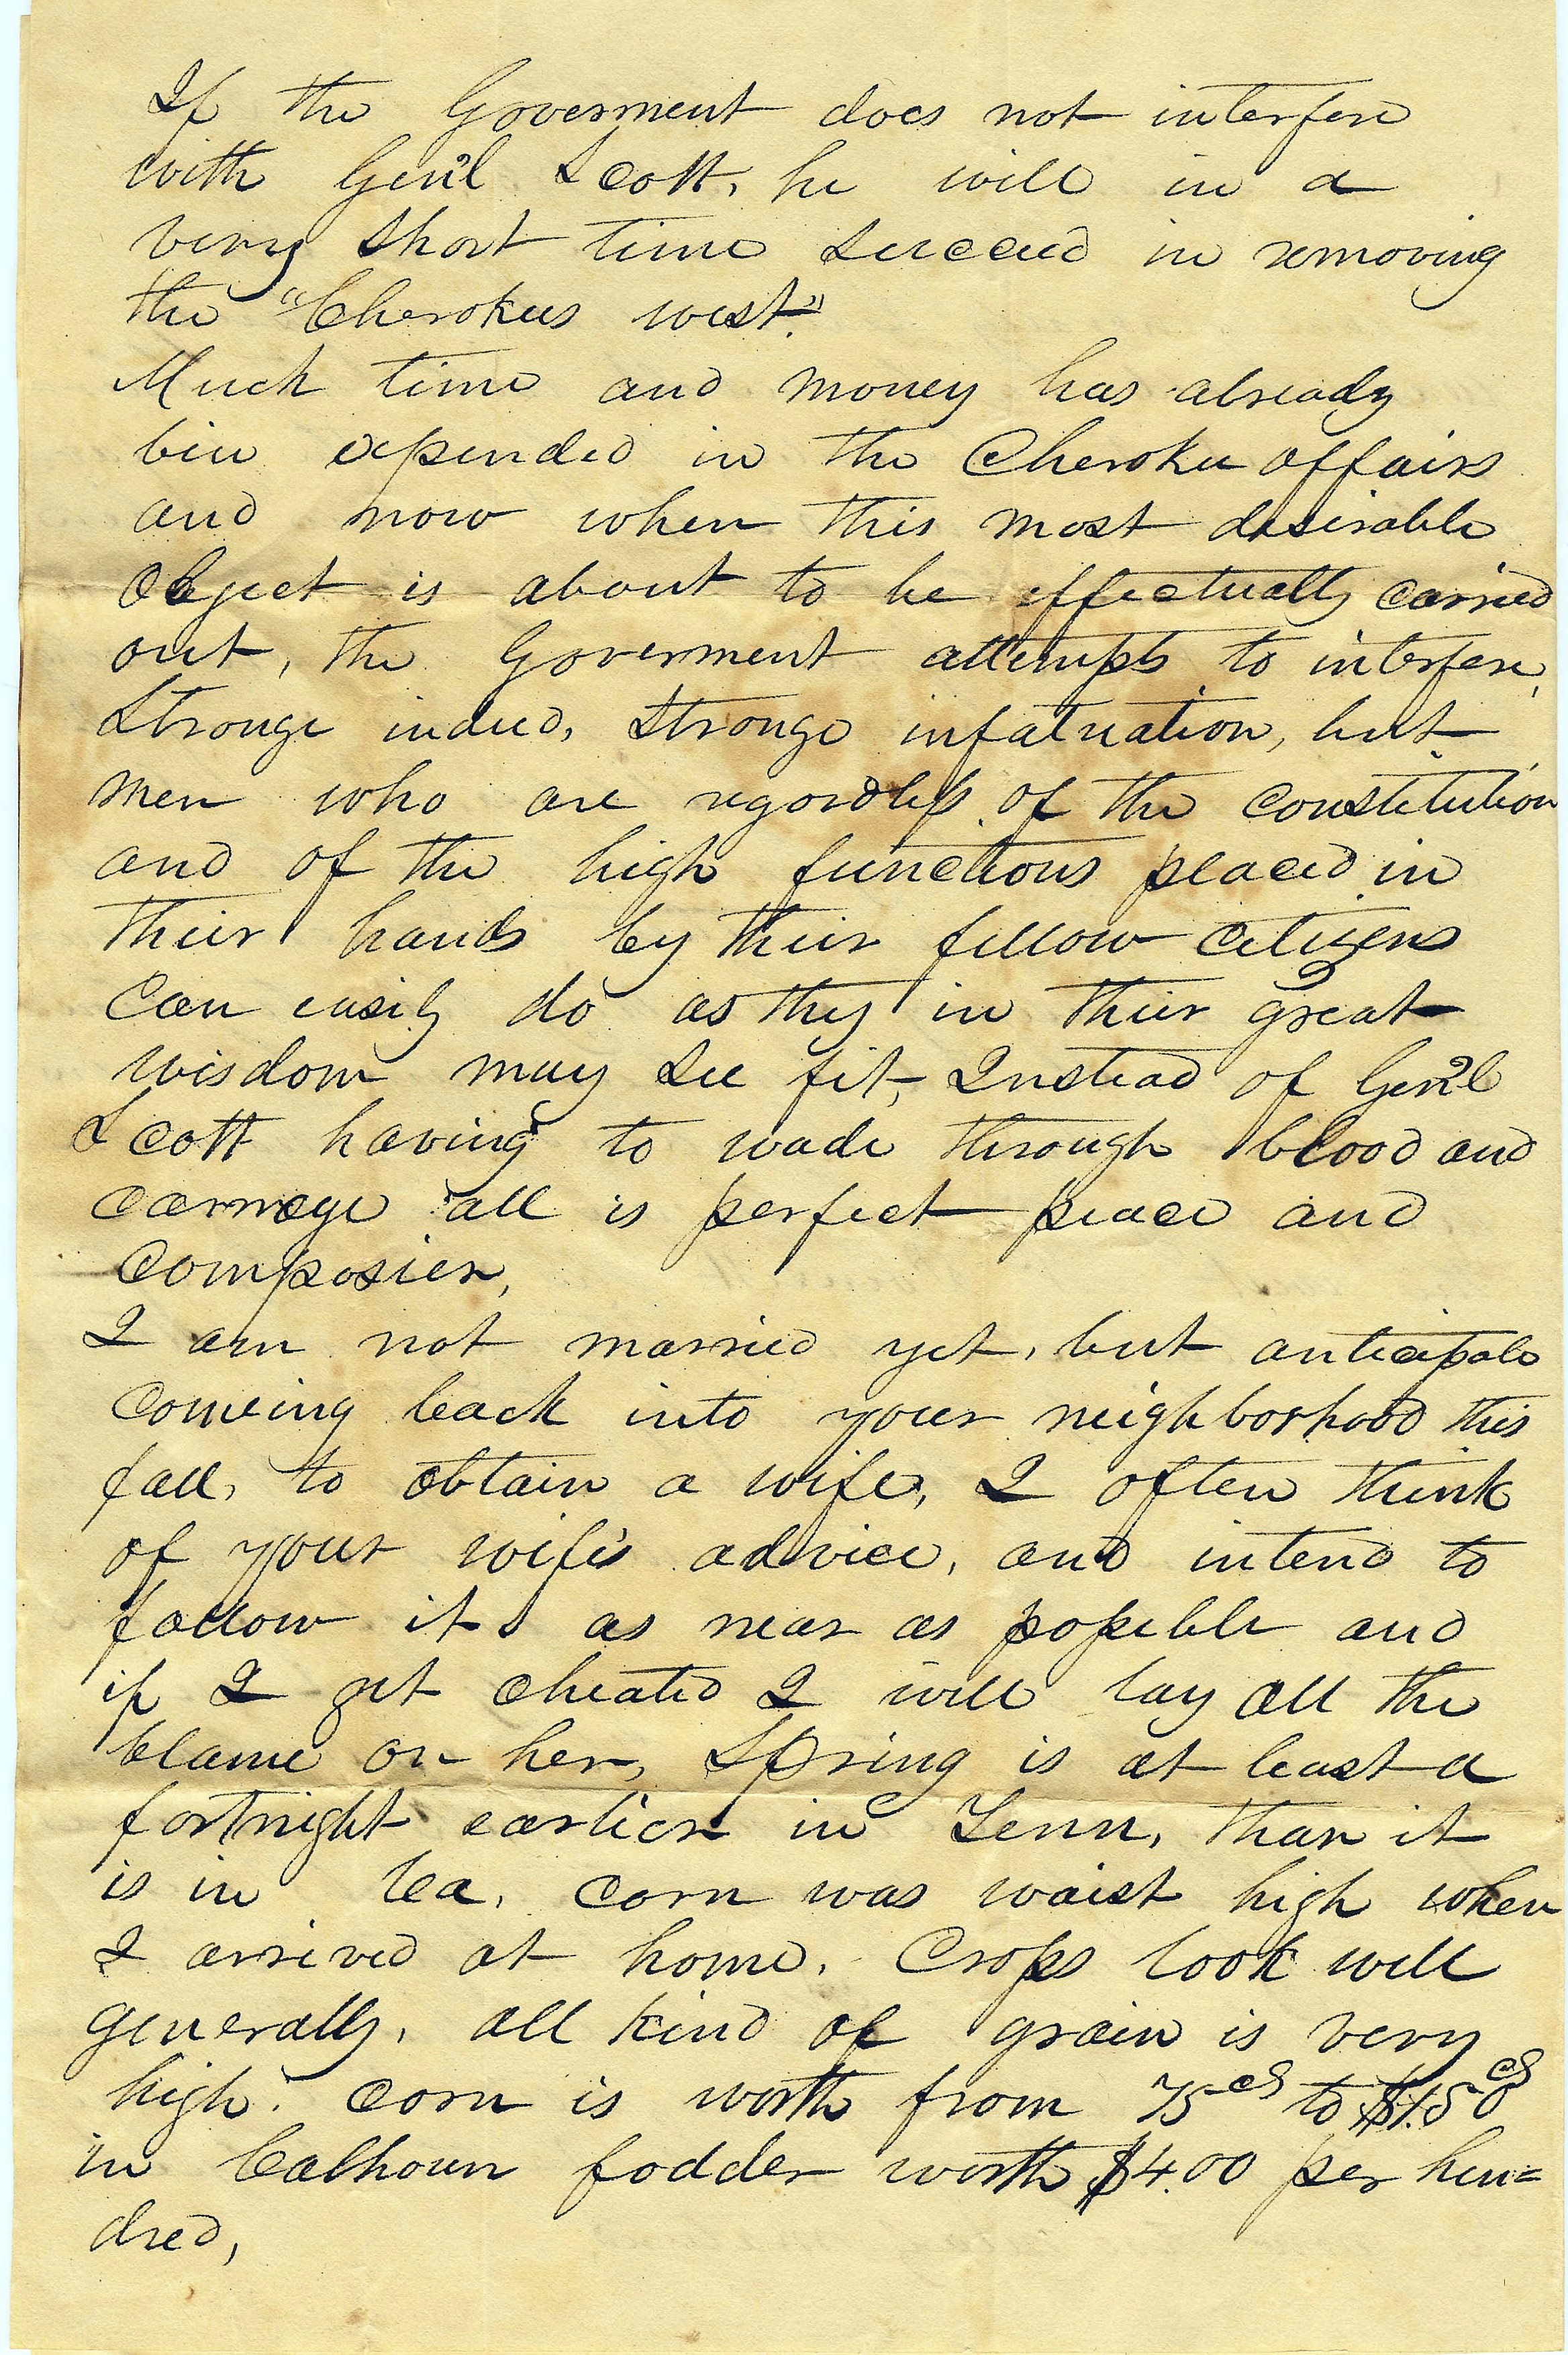 If the Goverment does not interfere
with Gen'l Scott, he will in a
very short time succeed in removing
the "Cherokees west."
Much time and money has already
bin expended in the Cherokee affairs
and now when this most desirable
object is about to be effectually carried
out, the Goverment attempts to interfere,
Strange indeed, strange infatuation, but
men who are regardless of the constitution
and of the high functions placed in
their hands by their fellow citizens
can easily do as they in their great
wisdom may see fit, Instead of Gen'l
Scott having to wade through blood and
carnage all is perfect peace and
composier,
I am not married yet, but anticipate
comeing back into your neighborhood this
fall, to obtain a wife, I often think
of your wife's advice, and intend to
follow it as near as possible and
if I get cheated I will lay all the
blame on her, Spring is at least a
fortnight earlier in Tenn, than it
is in Va. Corn was waist high when
I arrived at home. Crops look well
generally, all kind of grain is very
high. Corn is worth from 75cts to $1.50cts
in Calhoun fodder worth $4.00 per hun=
dred,